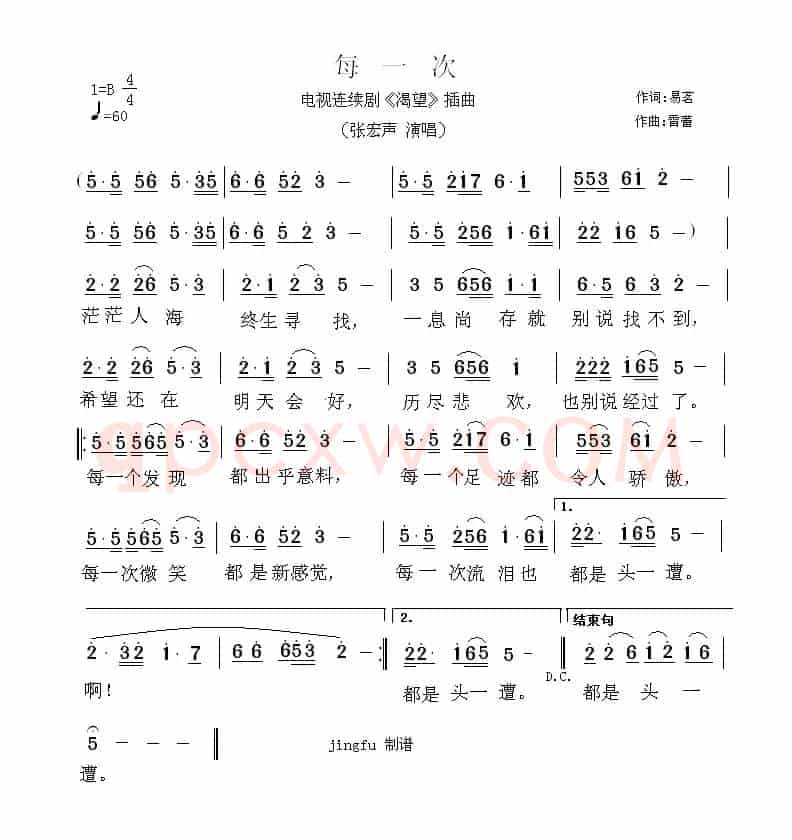 每一次
1=B 4/4
♩=60
电视连续剧《渴望》插曲
(张宏声 演唱)
作词:易茗
作曲:雷蕾
(5·5 56 5·35 | 6·6 52 3 - | 5·5 217 6·1 | 553 61 2 - |
5·5 56 5·35 | 6·6 5 2 3 - | 5·5 256 1·61 | 22 16 5 -) |
2·2 26 5·3 | 2·1 2 3 5 - | 3 5 656 5·3 | 6·5 63 2 - |
茫茫人海 终生寻找, 一息尚存就 别说找不到,
2·2 26 5·3 | 2·1 2 3 5 - | 3 5 656 1 | 222 165 5 - |
希望还在 明天会好, 历尽悲欢, 也别说经过了。
5·5 565 5·3 | 6·6 52 3 - | 5·5 217 6·6 | 553 61 2 - |
每一个发现 都出乎意料, 每一个足迹都 令人骄傲,
1.
5·5 565 5·3 | 6·6 52 3 - | 5·5 256 1·61 | 22· 165 5 - |
每一次微笑 都是新感觉, 每一次流泪也 都是头一遭。
2. 结束句
2· 32 1·7 | 6 6 653 2 - :| 22· 165 5 - | 2 2 6 1 2 1 6 |
D.C.
啊! 都是头一遭。 都是头一
5 - - -
jingfu 制谱
遭。
qpcxw.COM